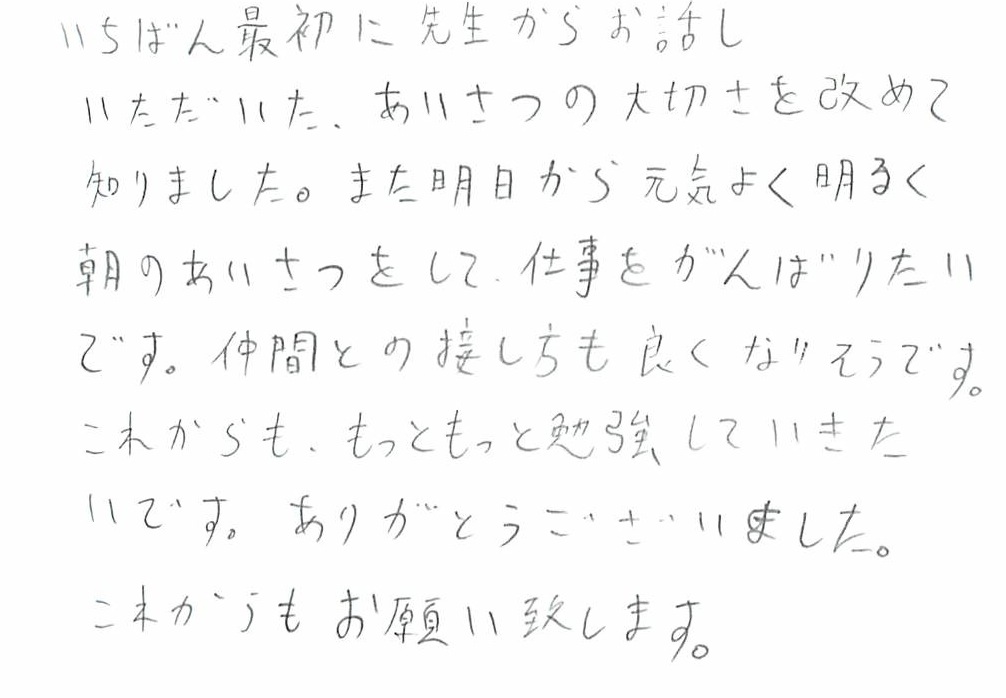 いちばん最初に先生からお話し
いただいた、あいさつの大切さを改めて
知りました。また明日から元気よく明るく
朝のあいさつをして、仕事をがんばりたい
です。仲間との接し方も良くなりそうです。
これからも、もっともっと勉強していきた
いです。ありがとうございました。
これからもお願い致します。